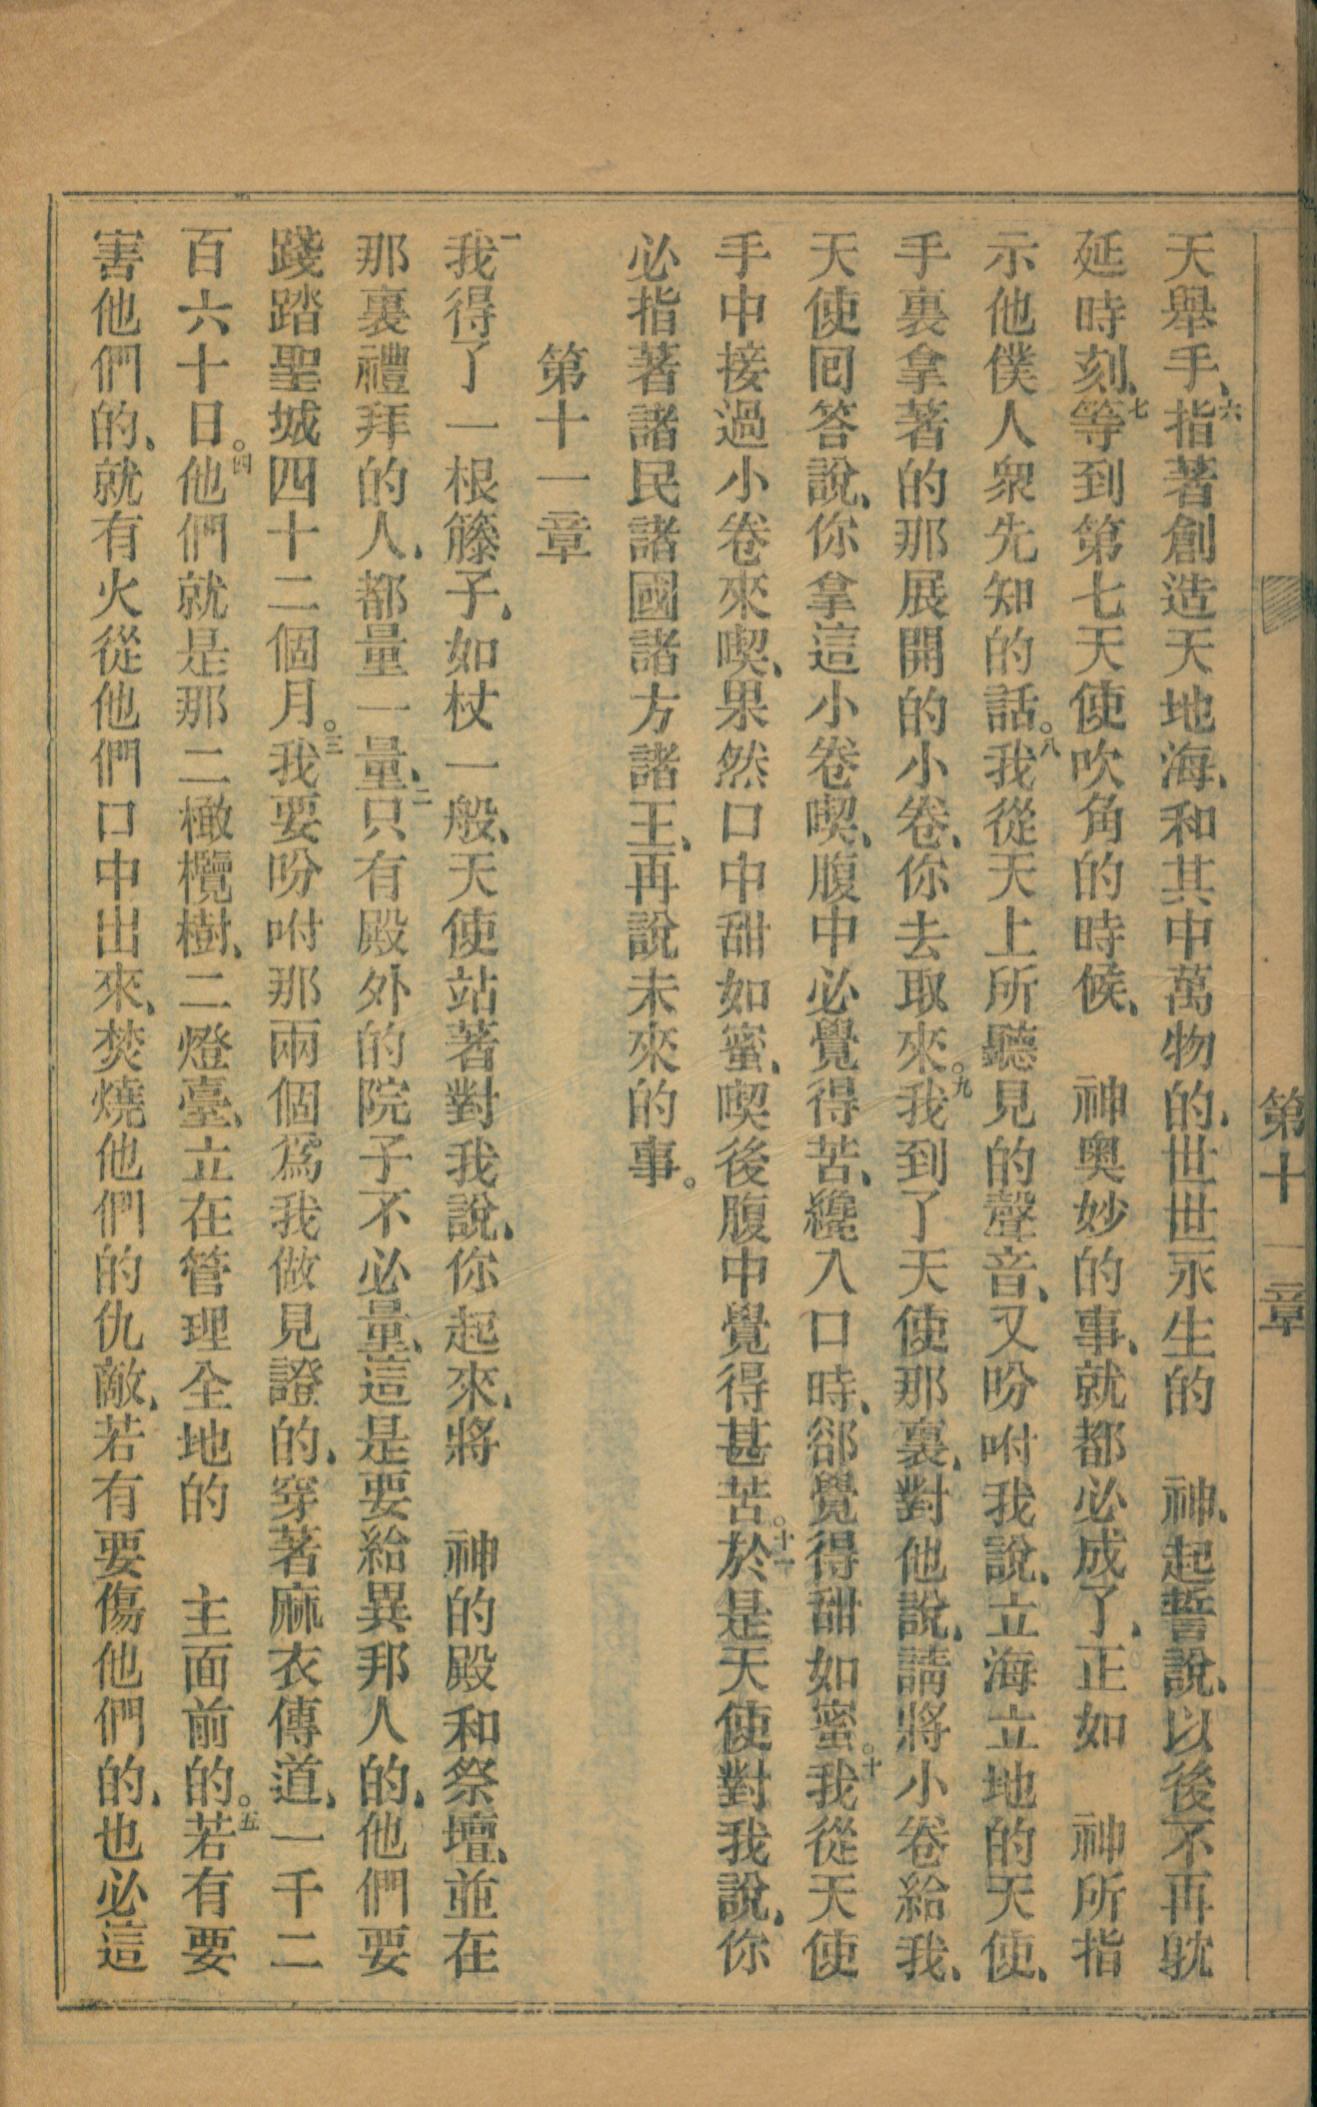 第十一章
天舉手、六指著創造天地海、和其中萬物的、世世永生的　神、起誓說、以後不再躭
延時刻、七等到第七天使吹角的時候、　神奧妙的事、就都必成了、正如　神所指
示他僕人衆先知的話。八我從天上所聽見的聲音、又吩咐我說、立海立地的天使、
手裏拿著的那展開的小卷、你去取來。九我到了天使那裏、對他說、請將小卷給我、
天使回答說、你拿這小卷喫、腹中必覺得苦、纔入口時、卻覺得甜如蜜。十我從天使
手中接過小卷來喫、果然口中甜如蜜、喫後腹中覺得甚苦。十一於是天使對我說、你
必指著諸民諸國諸方諸王、再說未來的事。
第十一章
一我得了一根籐子、如杖一般、天使站著對我說、你起來、將　神的殿和祭壇、並在
那裏禮拜的人、都量一量、二只有殿外的院子不必量、這是要給異邦人的、他們要
踐踏聖城四十二個月。三我要吩咐那兩個爲我做見證的、穿著麻衣傳道、一千二
百六十日。四他們就是那二橄欖樹、二燈臺、立在管理全地的　主面前的。五若有要
害他們的、就有火從他們口中出來、焚燒他們的仇敵、若有要傷他們的、也必這